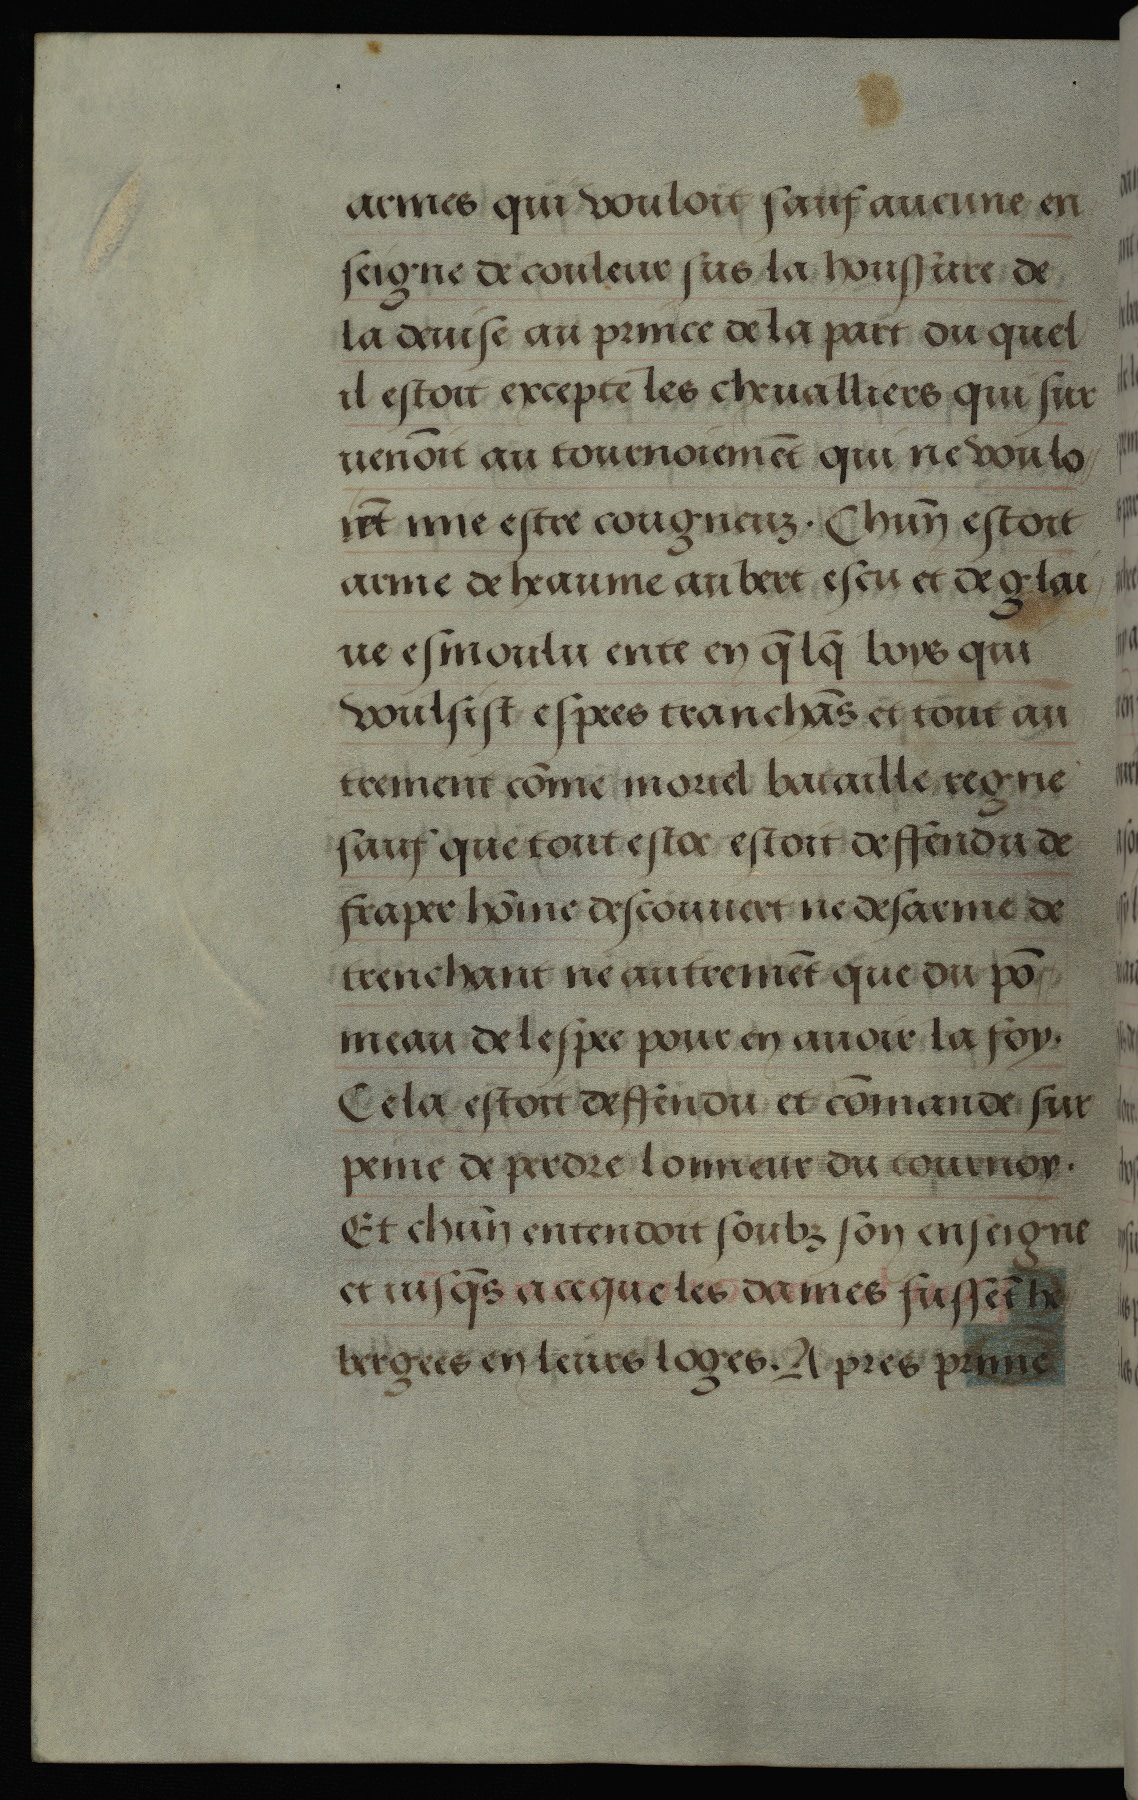 armes qui vouloit sauf aucune en
seigne de couleur sus la houssure de
la deuise au prince de la part du quel
il estoit excepte les cheualliers qui sur
uenōit au tournoiemēt qui ne voulo
iēt mie estre cougneuz. Chūn estoit
arme de heaume aubert escu et de glai
ue esmoulu ente en q̄lq̄ boys qui
voulsist espees tranchās et tout au
trement cōme mortel bataille regne
sauf que tout estoc estoit deffendu de
fraper hōme descouuert ne desarme de
trenchant ne autremēt que du pō
meau de lespee pour en auoir la foy.
Cela estoit deffendu et cōmande sur
peine de perdre lonneur du tournoy.
Et chūn entendoit soubz son enseigne
et iusq̄s a ce que les dames fussēt he
bergees en leurs loges. Apres prime